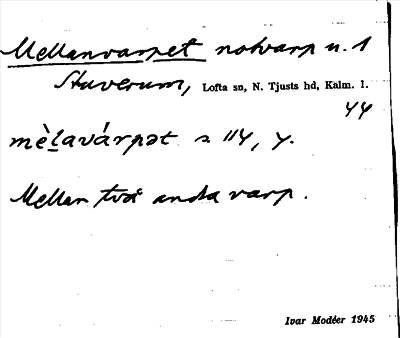 Mellanvarpet notvarp n. 1
Stuverum, Lofta sn, N. Tjusts hd, Kalm. l.
44
mèlavárpət 2 114, 4.
Mellan två andra varp.
Ivar Modéer 1945